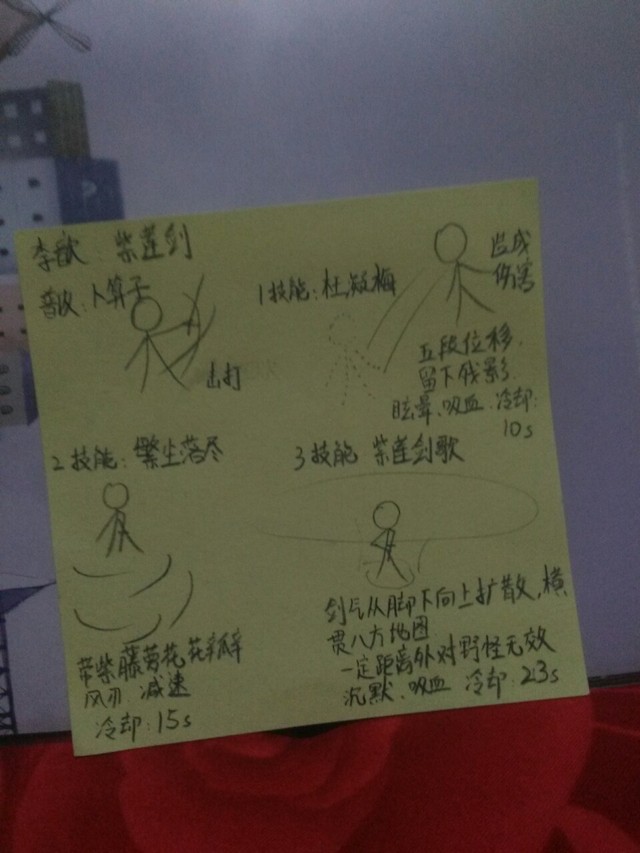 李歆：紫莲剑
普攻：卜算子
击打
1技能：杜
梅
造成
伤害
五段位移.
留下残影.
眩晕.吸血.冷却:
10s
2技能：繁尘落尽
带紫藤萝花花瓣
风刃.减速
冷却:15s
3技能 紫莲剑歌
剑气从脚下向上扩散,横
贯八方地图
一定距离外对野怪无效
沉默.吸血 冷却:23s